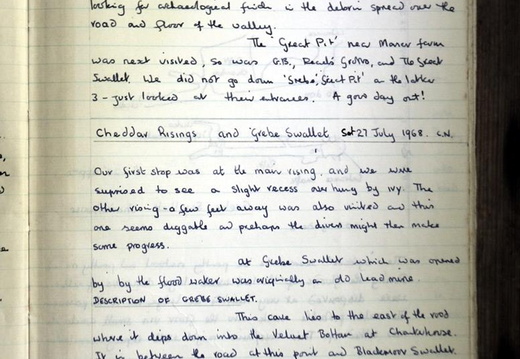 looking for archaeological finds in the debris spread over the
road and floor of the valley.
The 'Great Pit' near Manor farm
was next visited, so was G.B., Reads Grotto, and The
Swallet. We did not go down 'Grebe', 'Great Pit' or the latter
3 - just looked at their entrances. A good day out!
Cheddar Risings and Grebe Swallet Sat 27 July 1968. C.N.
Our first stop was at the main rising, and we were
suprised to see a slight recess over hung by ivy. The
other rising - a few feet away was also visited and this
one seems diggable and perhaps the divers might then make
some progress.
at Grebe Swallet which was opened
by by the flood water was originally an old lead mine.
DESCRIPTION OF GREBE SWALLET.
This cave lies to the east of the road
where it dips down into the Velvet Bottom at Charterhouse.
It is between the road at this point and Blackmoor Swallet